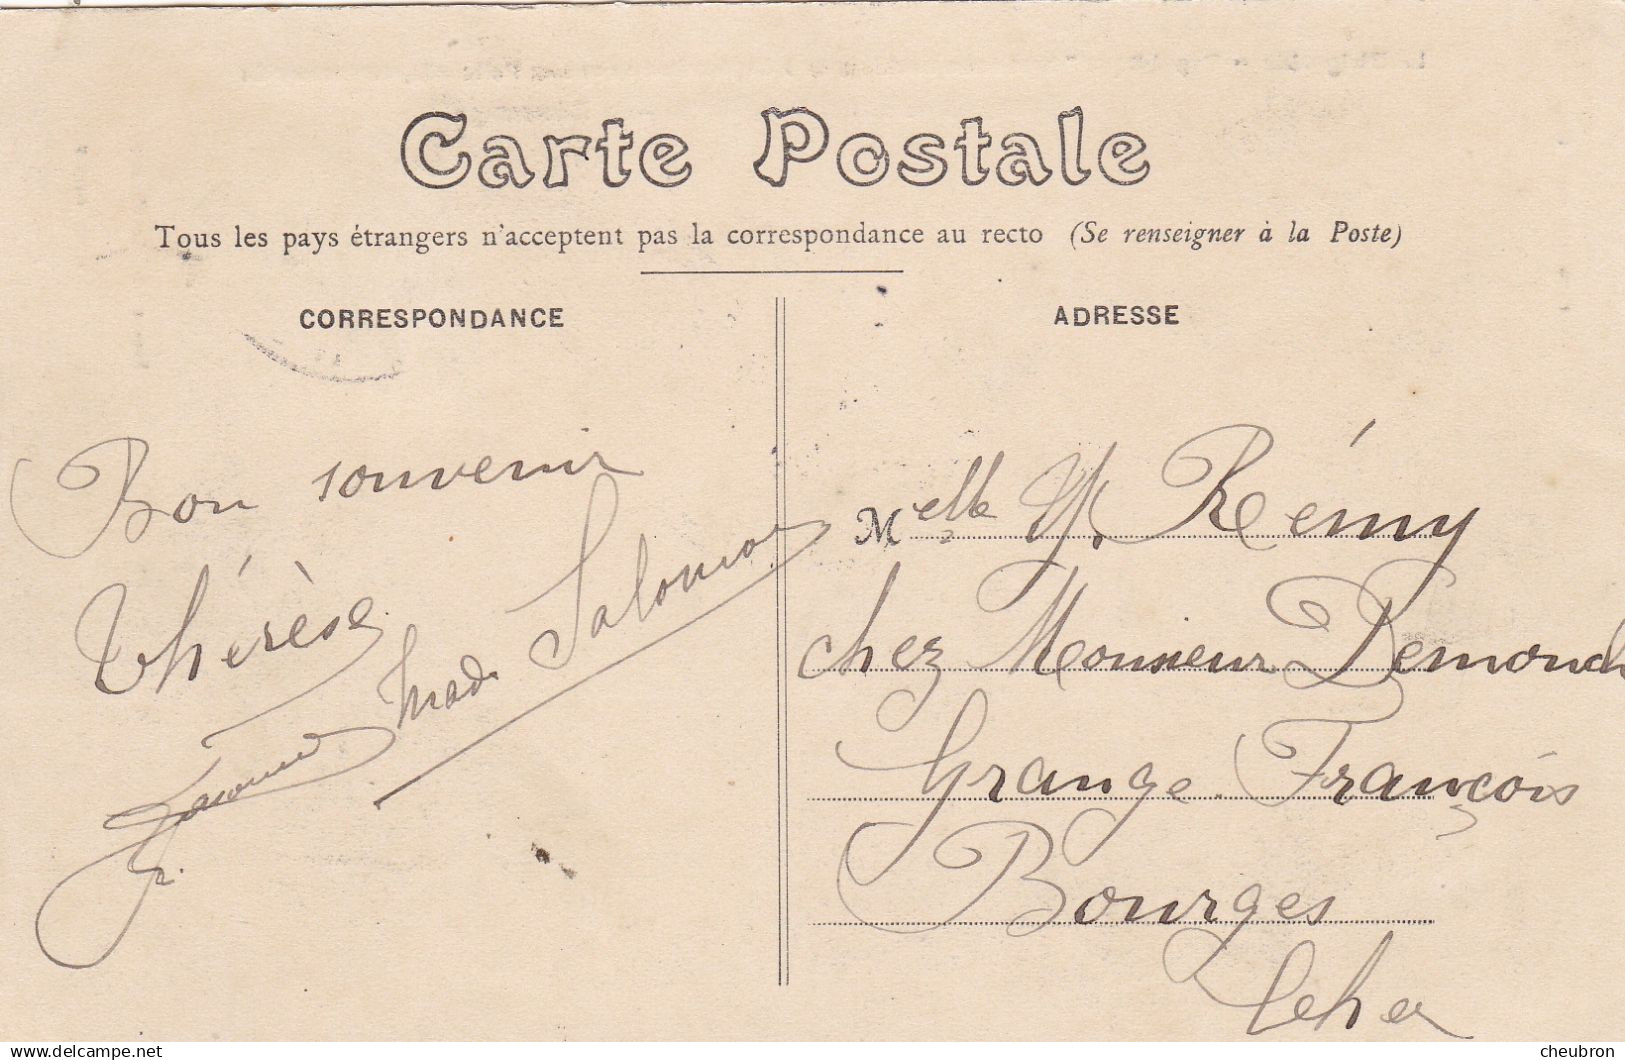 Carte Postale
Tous les pays étrangers n'acceptent pas la correspondance au recto (Se renseigner à la Poste)
CORRESPONDANCE
ADRESSE
Bon souvenir
Thérèse
Salomon
Melle Y. Rémy
chez Monsieur Demouch
Grange François
Bourges
Cher
cheubron